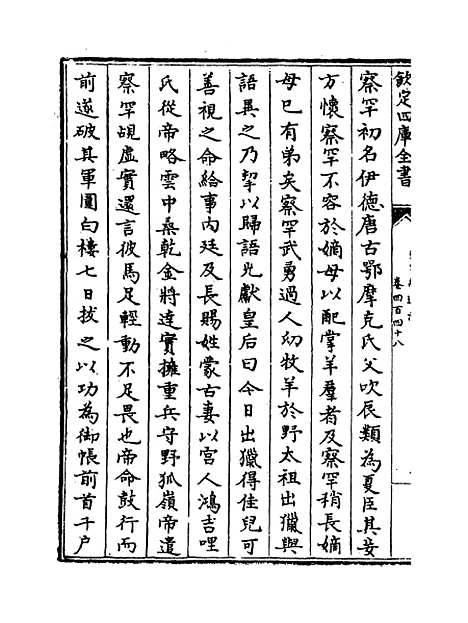 欽定四庫全書
卷四百四十八
察罕初名伊德唐古鄂摩克氏父吹辰類為夏臣其妾
方懷察罕不容於嫡母以配掌羊羣者及察罕稍長嫡
母已有弟矣察罕武勇過人幼牧羊於野太祖出獵與
語異之乃挈以歸語光獻皇后曰今日出獵得佳兒可
善視之命給事内廷及長賜姓蒙古妻以宫人鴻吉哩
氏從帝略雲中桑乾金將達實擁重兵守野狐嶺帝遣
察罕覘虚實還言彼馬足輕動不足畏也帝命鼓行而
前遂破其軍圍白樓七日拔之以功為御帳前首千户